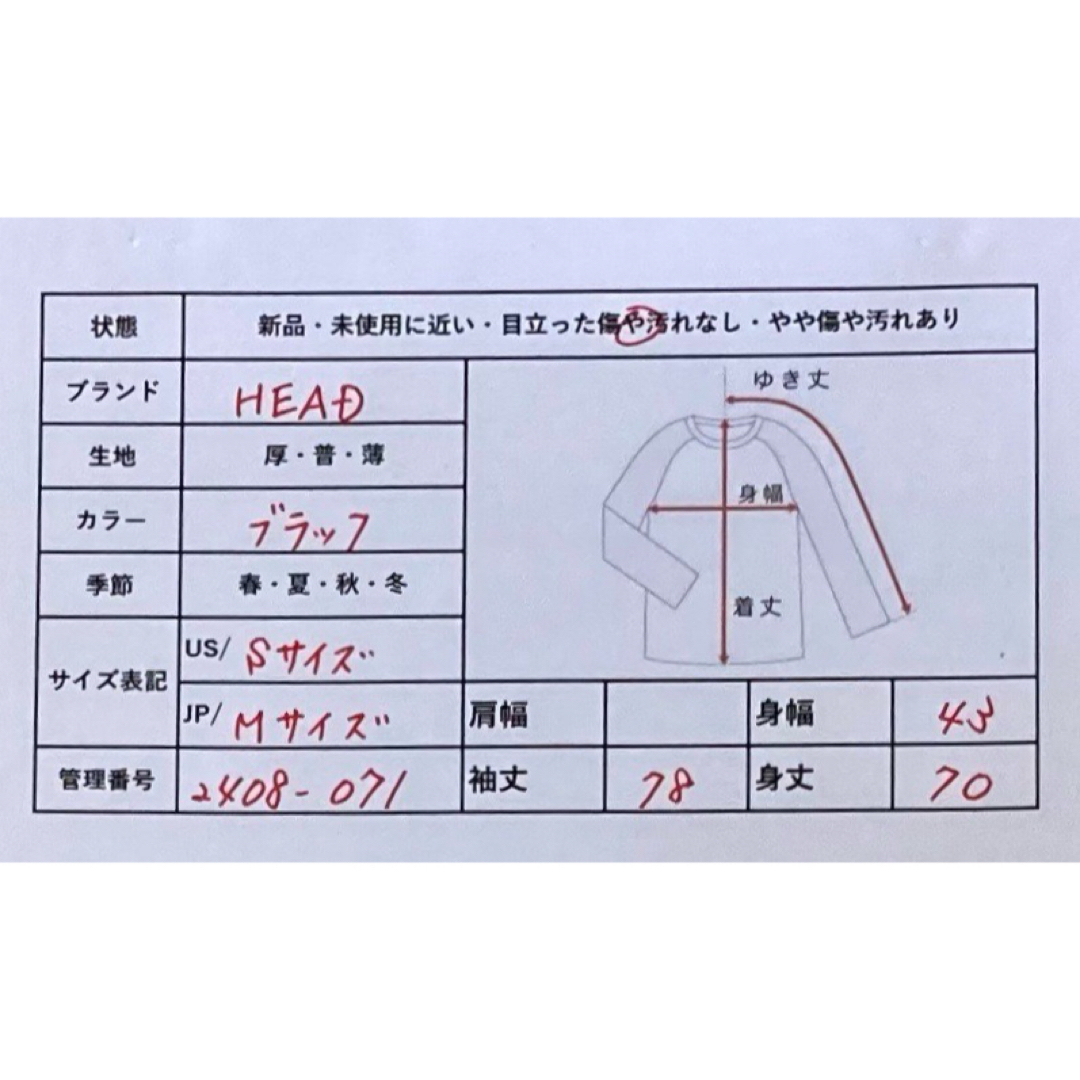 状態 新品・未使用に近い・目立った傷や汚れなし・やや傷や汚れあり
ブランド HEAD
ゆき丈
生地 厚・普・薄
身幅
カラー ブラック
季節 春・夏・秋・冬
着丈
サイズ表記 US/ Sサイズ
JP/ Mサイズ 肩幅 身幅 43
管理番号 2408-071 袖丈 78 身丈 70